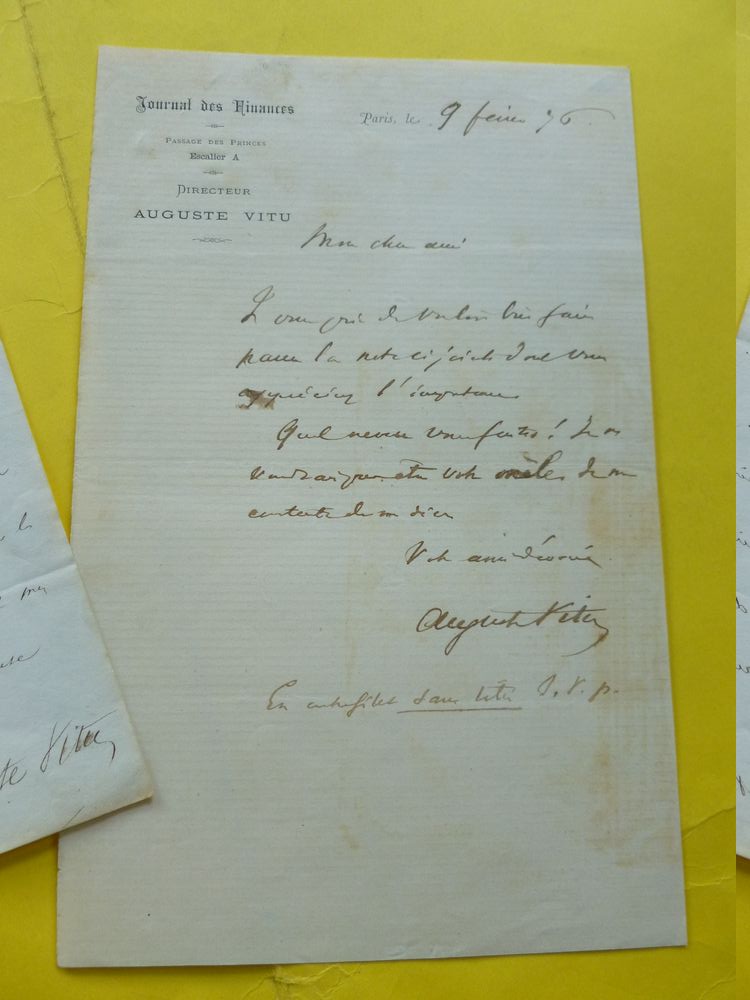 Journal des Finances
Passage des Princes
Escalier A
Directeur
AUGUSTE VITU
Paris, le 9 février 76
Mon cher ami
Je vous prie de vouloir bien faire
passer la note ci jointe dont vous
apprécierez l'importance
Quel vous faites! Je
voudrais votre de
Votre ami dévoué
Auguste Vitu
En entrefilet sans titre S. V. p.
Vitu